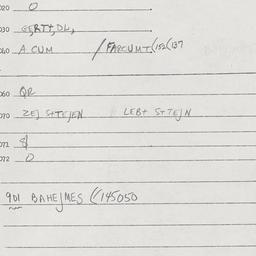 020 0
030 GERTT, DL,
060 A CUM / FARCUMT (152(137
060 QR
070 ZEJ STTEJEN LEBT STTEJN
071 $
072 0
901 BAHEJMES ((145050